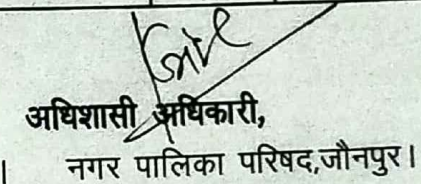 अधिशासी अधिकारी,
। नगर पालिका परिषद,जौनपुर।